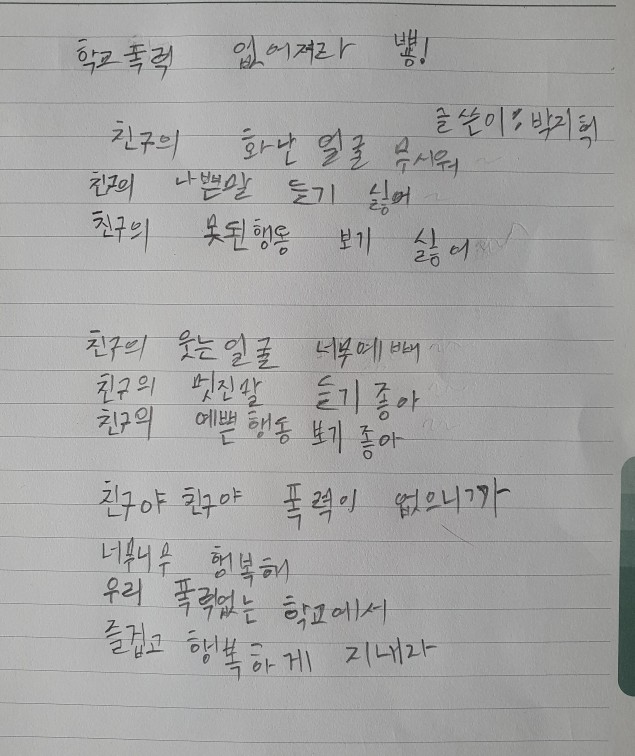 학교폭력 없어져라 뿅!
글쓴이: 박지혁
친구의 화난 얼굴 무서워
친구의 나쁜말 듣기 싫어
친구의 못된행동 보기 싫어
친구의 웃는얼굴 너무예뻐
친구의 멋진말 듣기 좋아
친구의 예쁜행동 보기 좋아
친구야 친구야 폭력이 없으니까
너무너무 행복해
우리 폭력없는 학교에서
즐겁고 행복하게 지내라